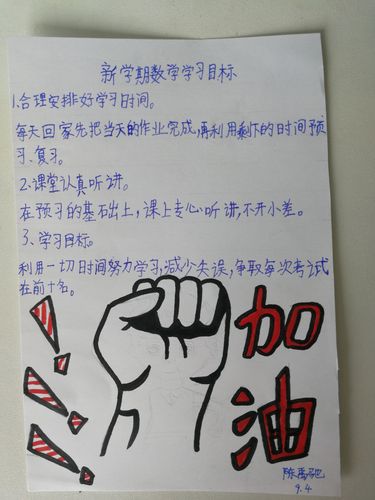 新学期数学学习目标
1.合理安排好学习时间。
每天回家先把当天的作业完成,再利用剩下的时间预
习、复习。
2.课堂认真听讲。
在预习的基础上,课上专心听讲,不开小差。
3、学习目标。
利用一切时间努力学习,减少失误,争取每次考试
在前十名。
加
油
陈禹
9.4